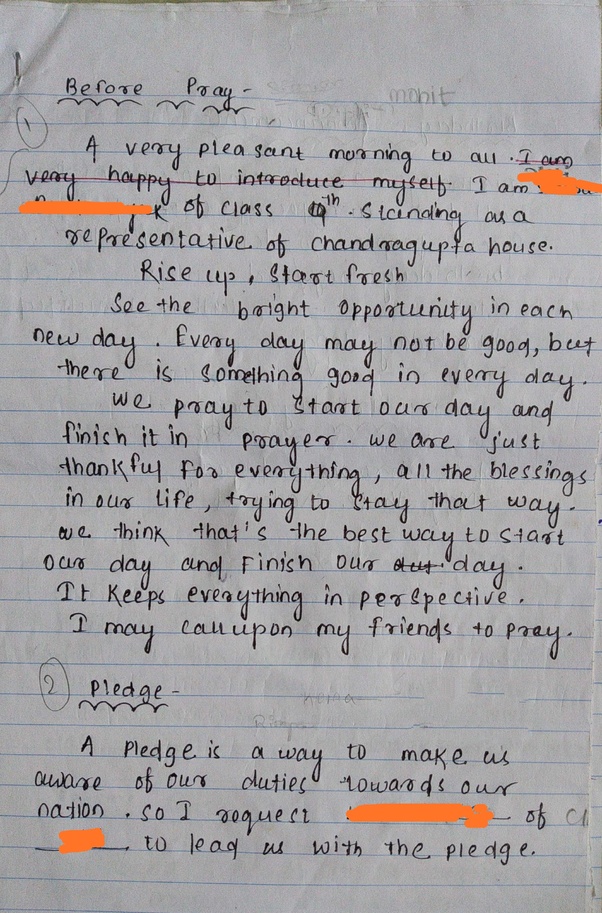 Before Pray -
mohit
1
A very pleasant morning to all. I am
very happy to introduce myself. I am
k of class 9th. standing as a
representative of chandragupta house.
Rise up, start fresh
see the bright opportunity in each
new day. Every day may not be good, but
there is something good in every day.
we pray to start our day and
finish it in prayer. we are just
thankful for everything, all the blessings
in our life, trying to stay that way.
we think that's the best way to start
our day and finish our day.
It keeps everything in perspective.
I may call upon my friends to pray.
2 Pledge -
A pledge is a way to make us
aware of our duties towards our
nation. so I request of cl
to lead us with the pledge.